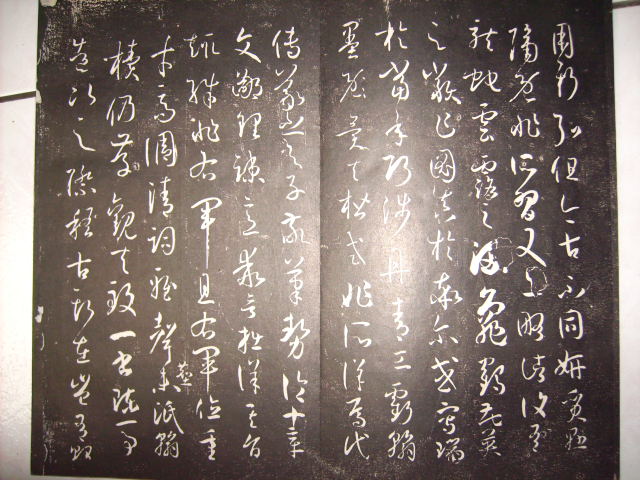 用斯弘但今古不同妍質懸
隔既非所習又亦略諸復有
龍蛇雲露之流龜鶴花英
之類乍圖真於率爾或寫瑞
於當年巧涉丹青工虧翰
墨異夫楷式非所詳焉代
傳羲之與子敬筆勢論十章
文鄙理疏意乖言拙詳其旨
趣殊非右軍且右軍位重
才高調清詞雅聲塵未泯翰
牘仍存觀夫致一書陳一事
造次之際稽古斯在豈有貽